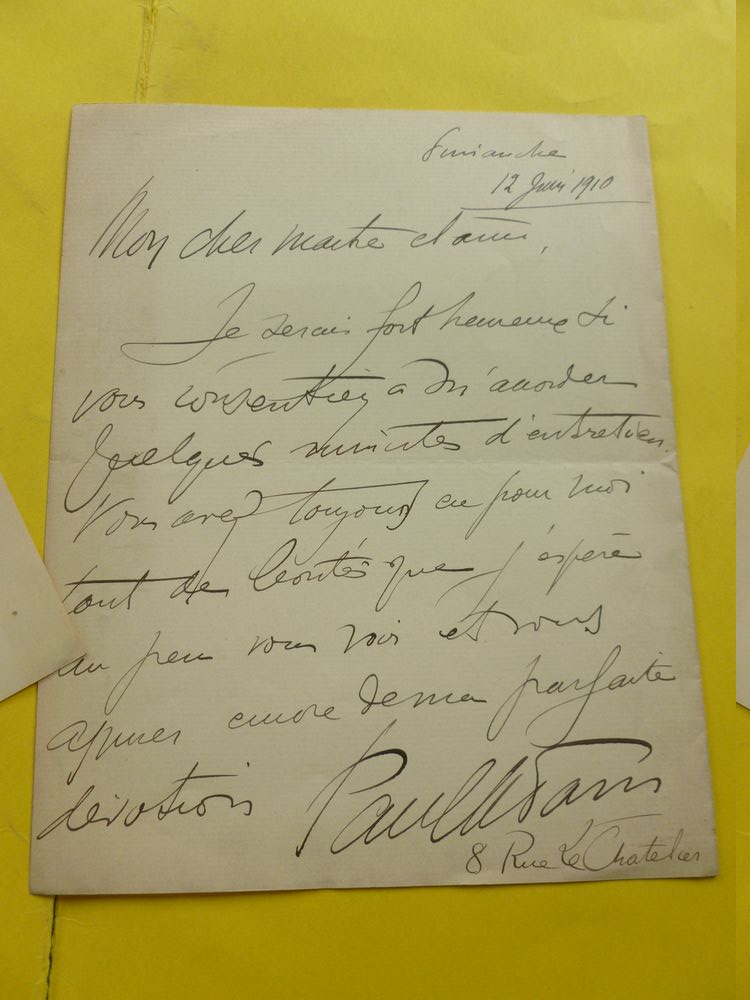 Dimanche
12 Juin 1910
Mon cher maitre et ami,
Je serais fort heureux si
vous consentiez à m'accorder
quelques minutes d'entretien.
Vous avez toujours eu pour moi
tant de bontés que j'espère
un peu vous voir et vous
assurer encore de ma parfaite
dévotion
Paul Adam
8 Rue Le Chatelier